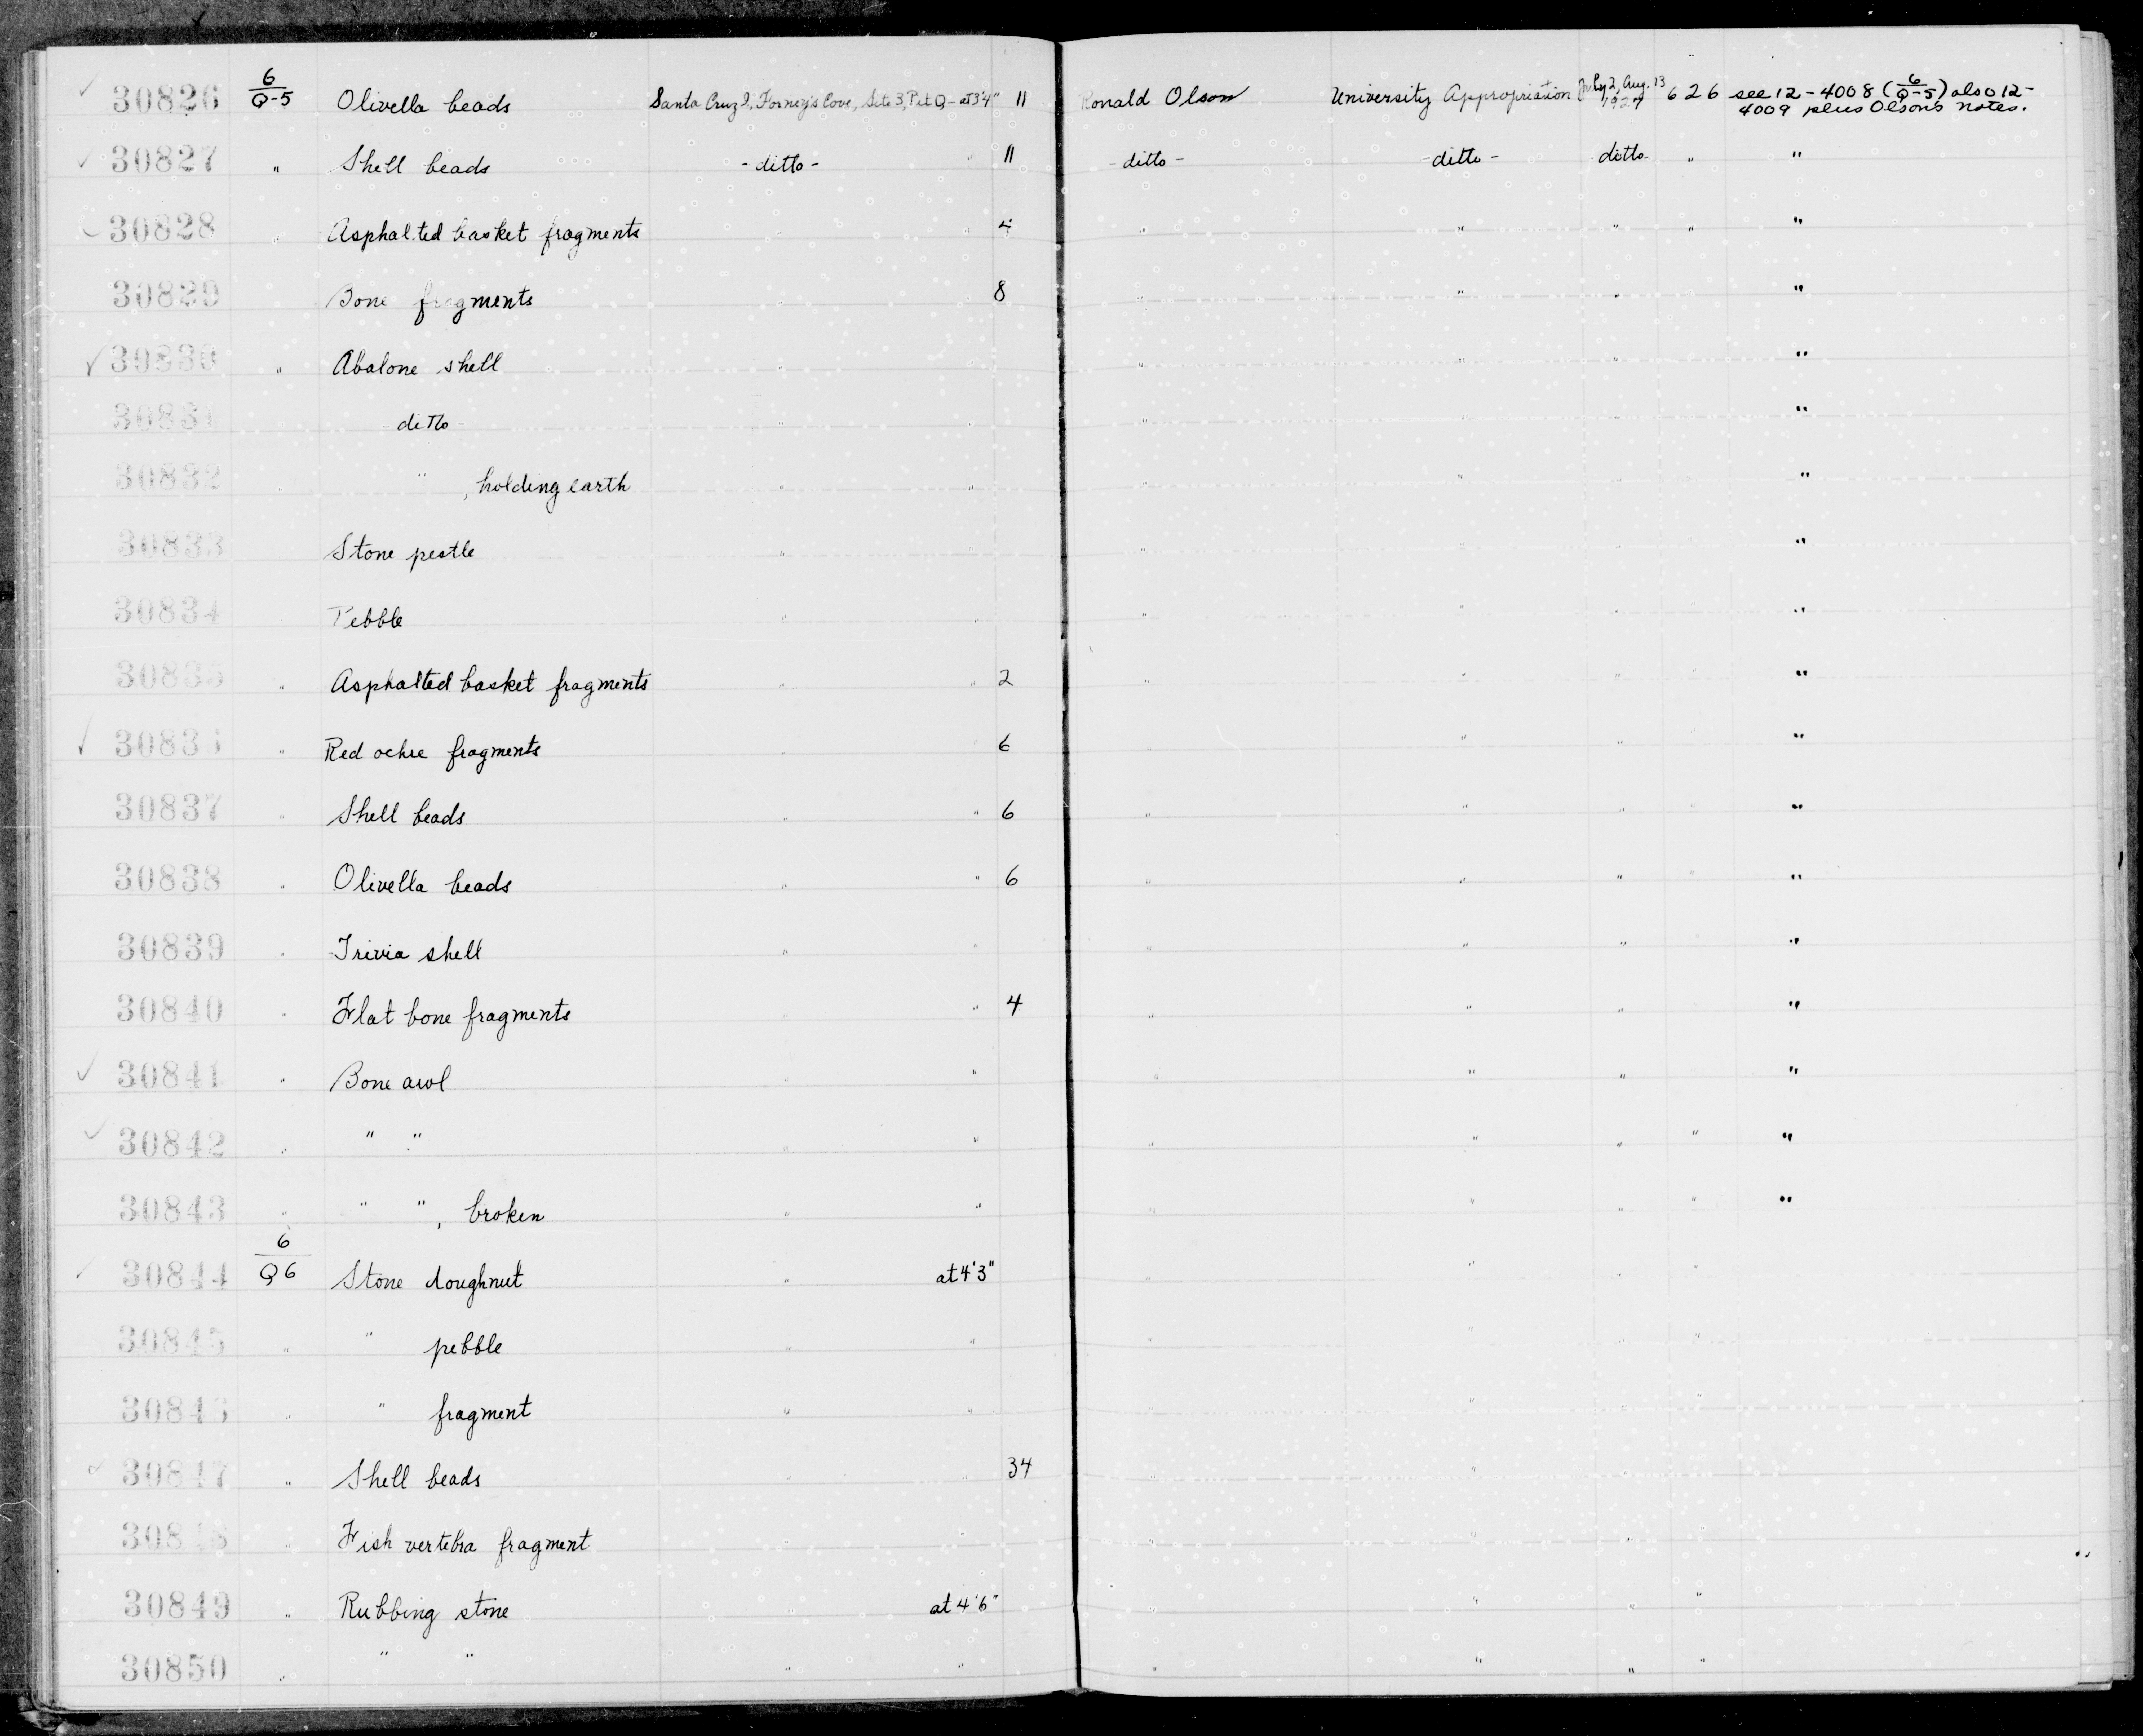 ✓ 30826 6/Q-5 Olivella beads Santa Cruz I, Forney's Cove, Site 3, Pit Q - at 3'4" 11 Ronald Olson University Appropriation July 2, Aug. 13 1927 626 see 12-4008 (6/Q-5) also 12-4009 plus Olson's notes.
✓ 30827 " Shell beads - ditto - " 11 - ditto - - ditto - ditto " "
✓ 30828 " Asphalted basket fragments " " 4 " " " " "
30829 Bone fragments " " 8 " " " "
✓ 30830 " Abalone shell " " " " " "
30831 - ditto - " " " " " "
30832 " , holding earth " " " " " "
30833 Stone pestle " " " " " "
30834 Pebble " " " " " "
30835 " Asphalted basket fragments " " 2 " " " "
✓ 30836 " Red ochre fragments " " 6 " " " "
30837 " Shell beads " " 6 " " " " "
30838 " Olivella beads " " 6 " " " " "
30839 " Trivia shell " " " " " "
30840 " Flat bone fragments " " 4 " " " "
✓ 30841 " Bone awl " " " " " "
✓ 30842 " " " " " " " " " "
30843 " " " , broken " " " " " " "
✓ 30844 6/Q6 Stone doughnut " at 4'3" " " " "
30845 " " pebble " " " " "
30846 " " fragment " " " "
✓ 30847 " Shell beads " " 34 " " "
30848 " Fish vertebra fragment " " " " "
30849 " Rubbing stone " at 4'6" " " " "
30850 " " " " " " " " "